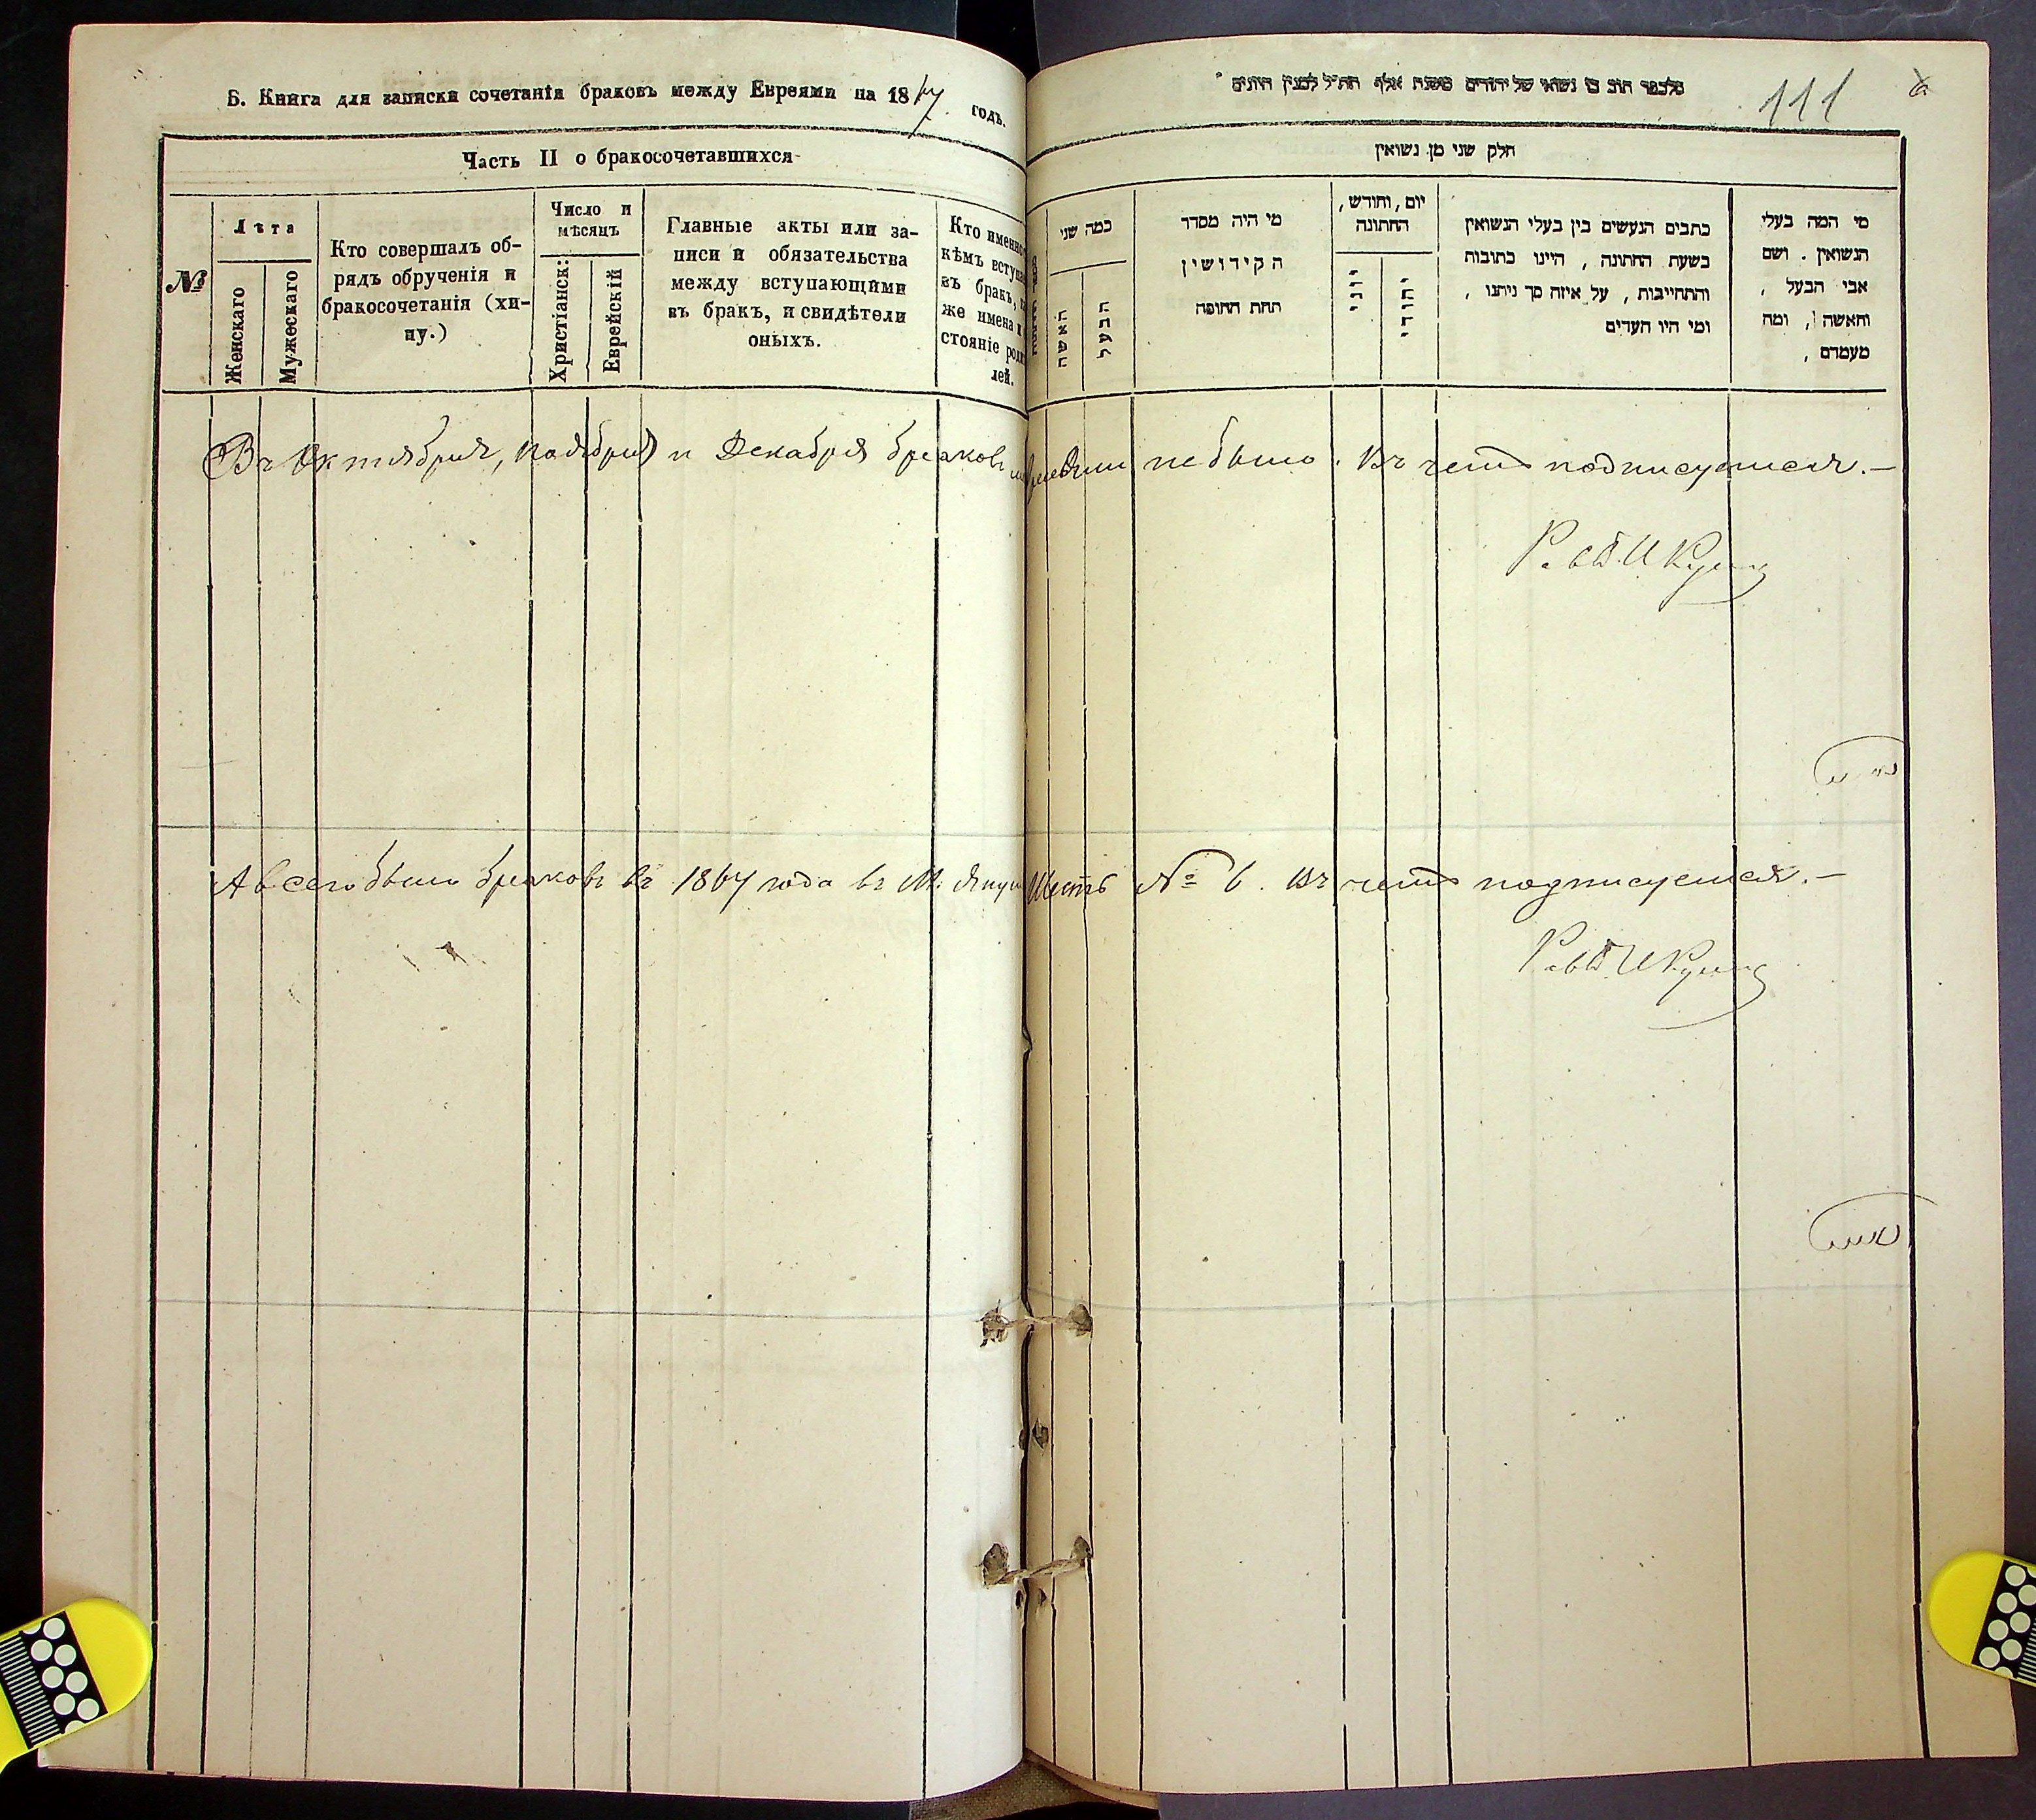 Б. Книга для записки сочетанія браковъ между Евреями на 1867 годъ.
Часть II о бракосочетавшихся
№
Лѣта
Женскаго
Мужескаго
Кто совершалъ об-
рядъ обрученія и
бракосочетанія (хи-
пу.)
Число и
мѣсяцъ
Христіанск:
Еврейскій
Главные акты или за-
писи и обязательства
между вступающими
въ бракъ, и свидѣтели
оныхъ.
Кто именно
кѣмъ вступа
въ бракъ,
же имена и
стояніе роди
лей.
111
חלק שני מן נשואין
כמה שני
האשה
הבעל
מי היה מסדר
הקידושין
תחת החופה
יום, וחודש,
החתונה
יוני
יהודי
כתבים הנעשים בין בעלי הנשואין
בשעת החתונה, היינו כתובות
והתחייבות, על איזה סך ניתנו,
ומי היו העדים
מי המה בעלי
הנשואין. ושם
אבי הבעל,
והאשה, ומה
מעמדם,
Въ Октябрѣ, Ноябрѣ и Декабрѣ браковъ между Евреями не было. Въ чемъ подписуемся.—
А всего было браковъ въ 1867 года въ М. Шесть № 6. Въ чемъ подписуемся.—